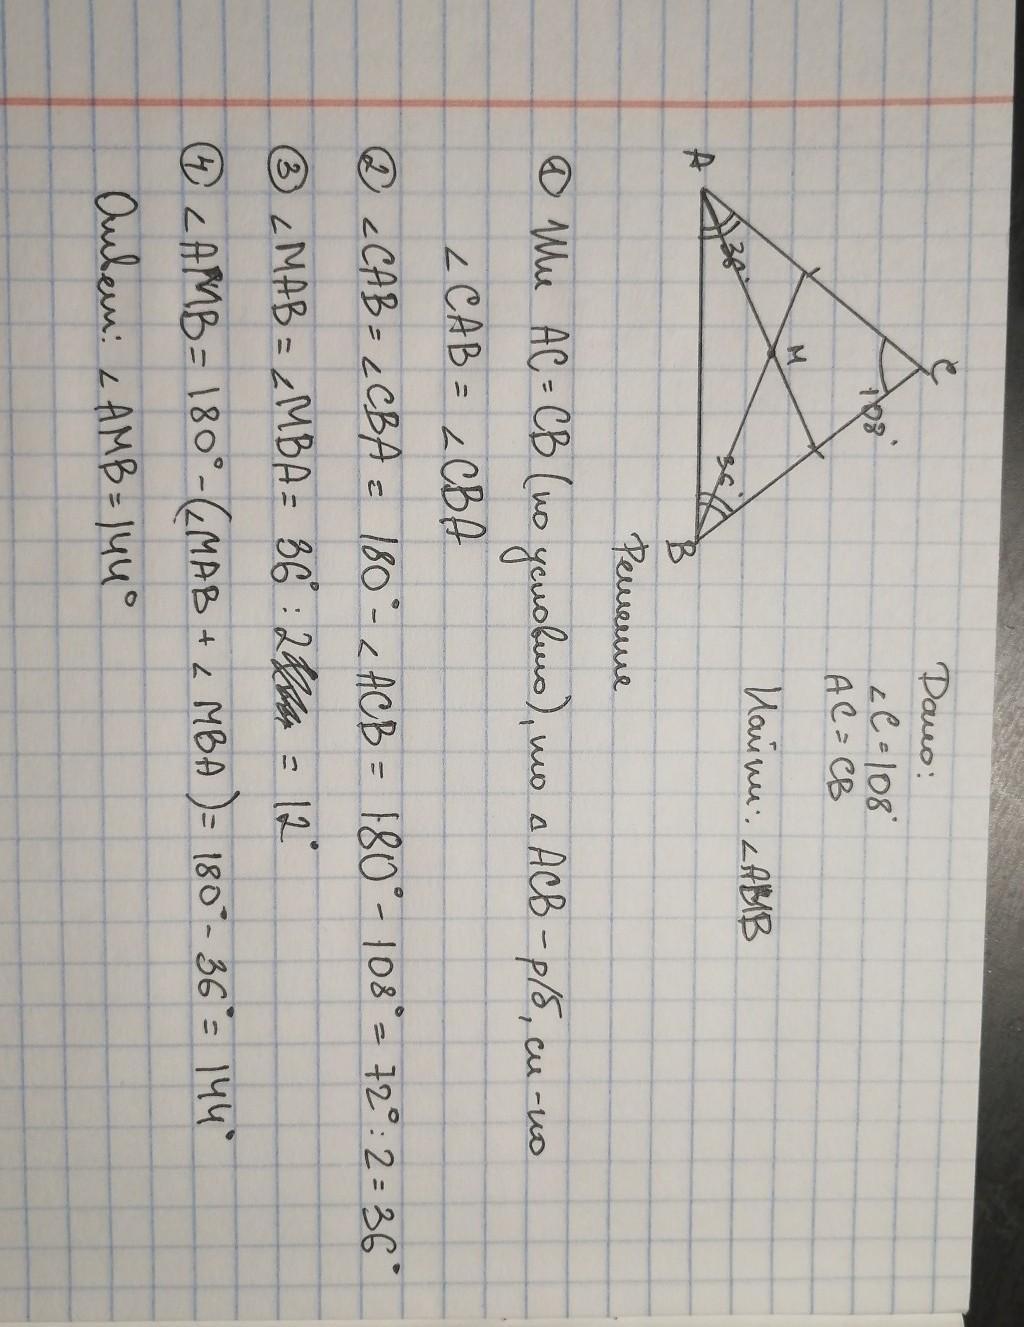 Дано:
∠C = 108°
AC = CB
Найти: ∠AMB
C
108°
A
36°
M
36°
B
Решение
① Т.к. AC = CB (по условию), то △ ACB - р/б, сл-но
∠CAB = ∠CBA
② ∠CAB = ∠CBA = 180° - ∠ACB = 180° - 108° = 72° : 2 = 36°
③ ∠MAB = ∠MBA = 36° : 2 = 12°
④ ∠AMB = 180° - (∠MAB + ∠MBA) = 180° - 36° = 144°
Ответ: ∠AMB = 144°